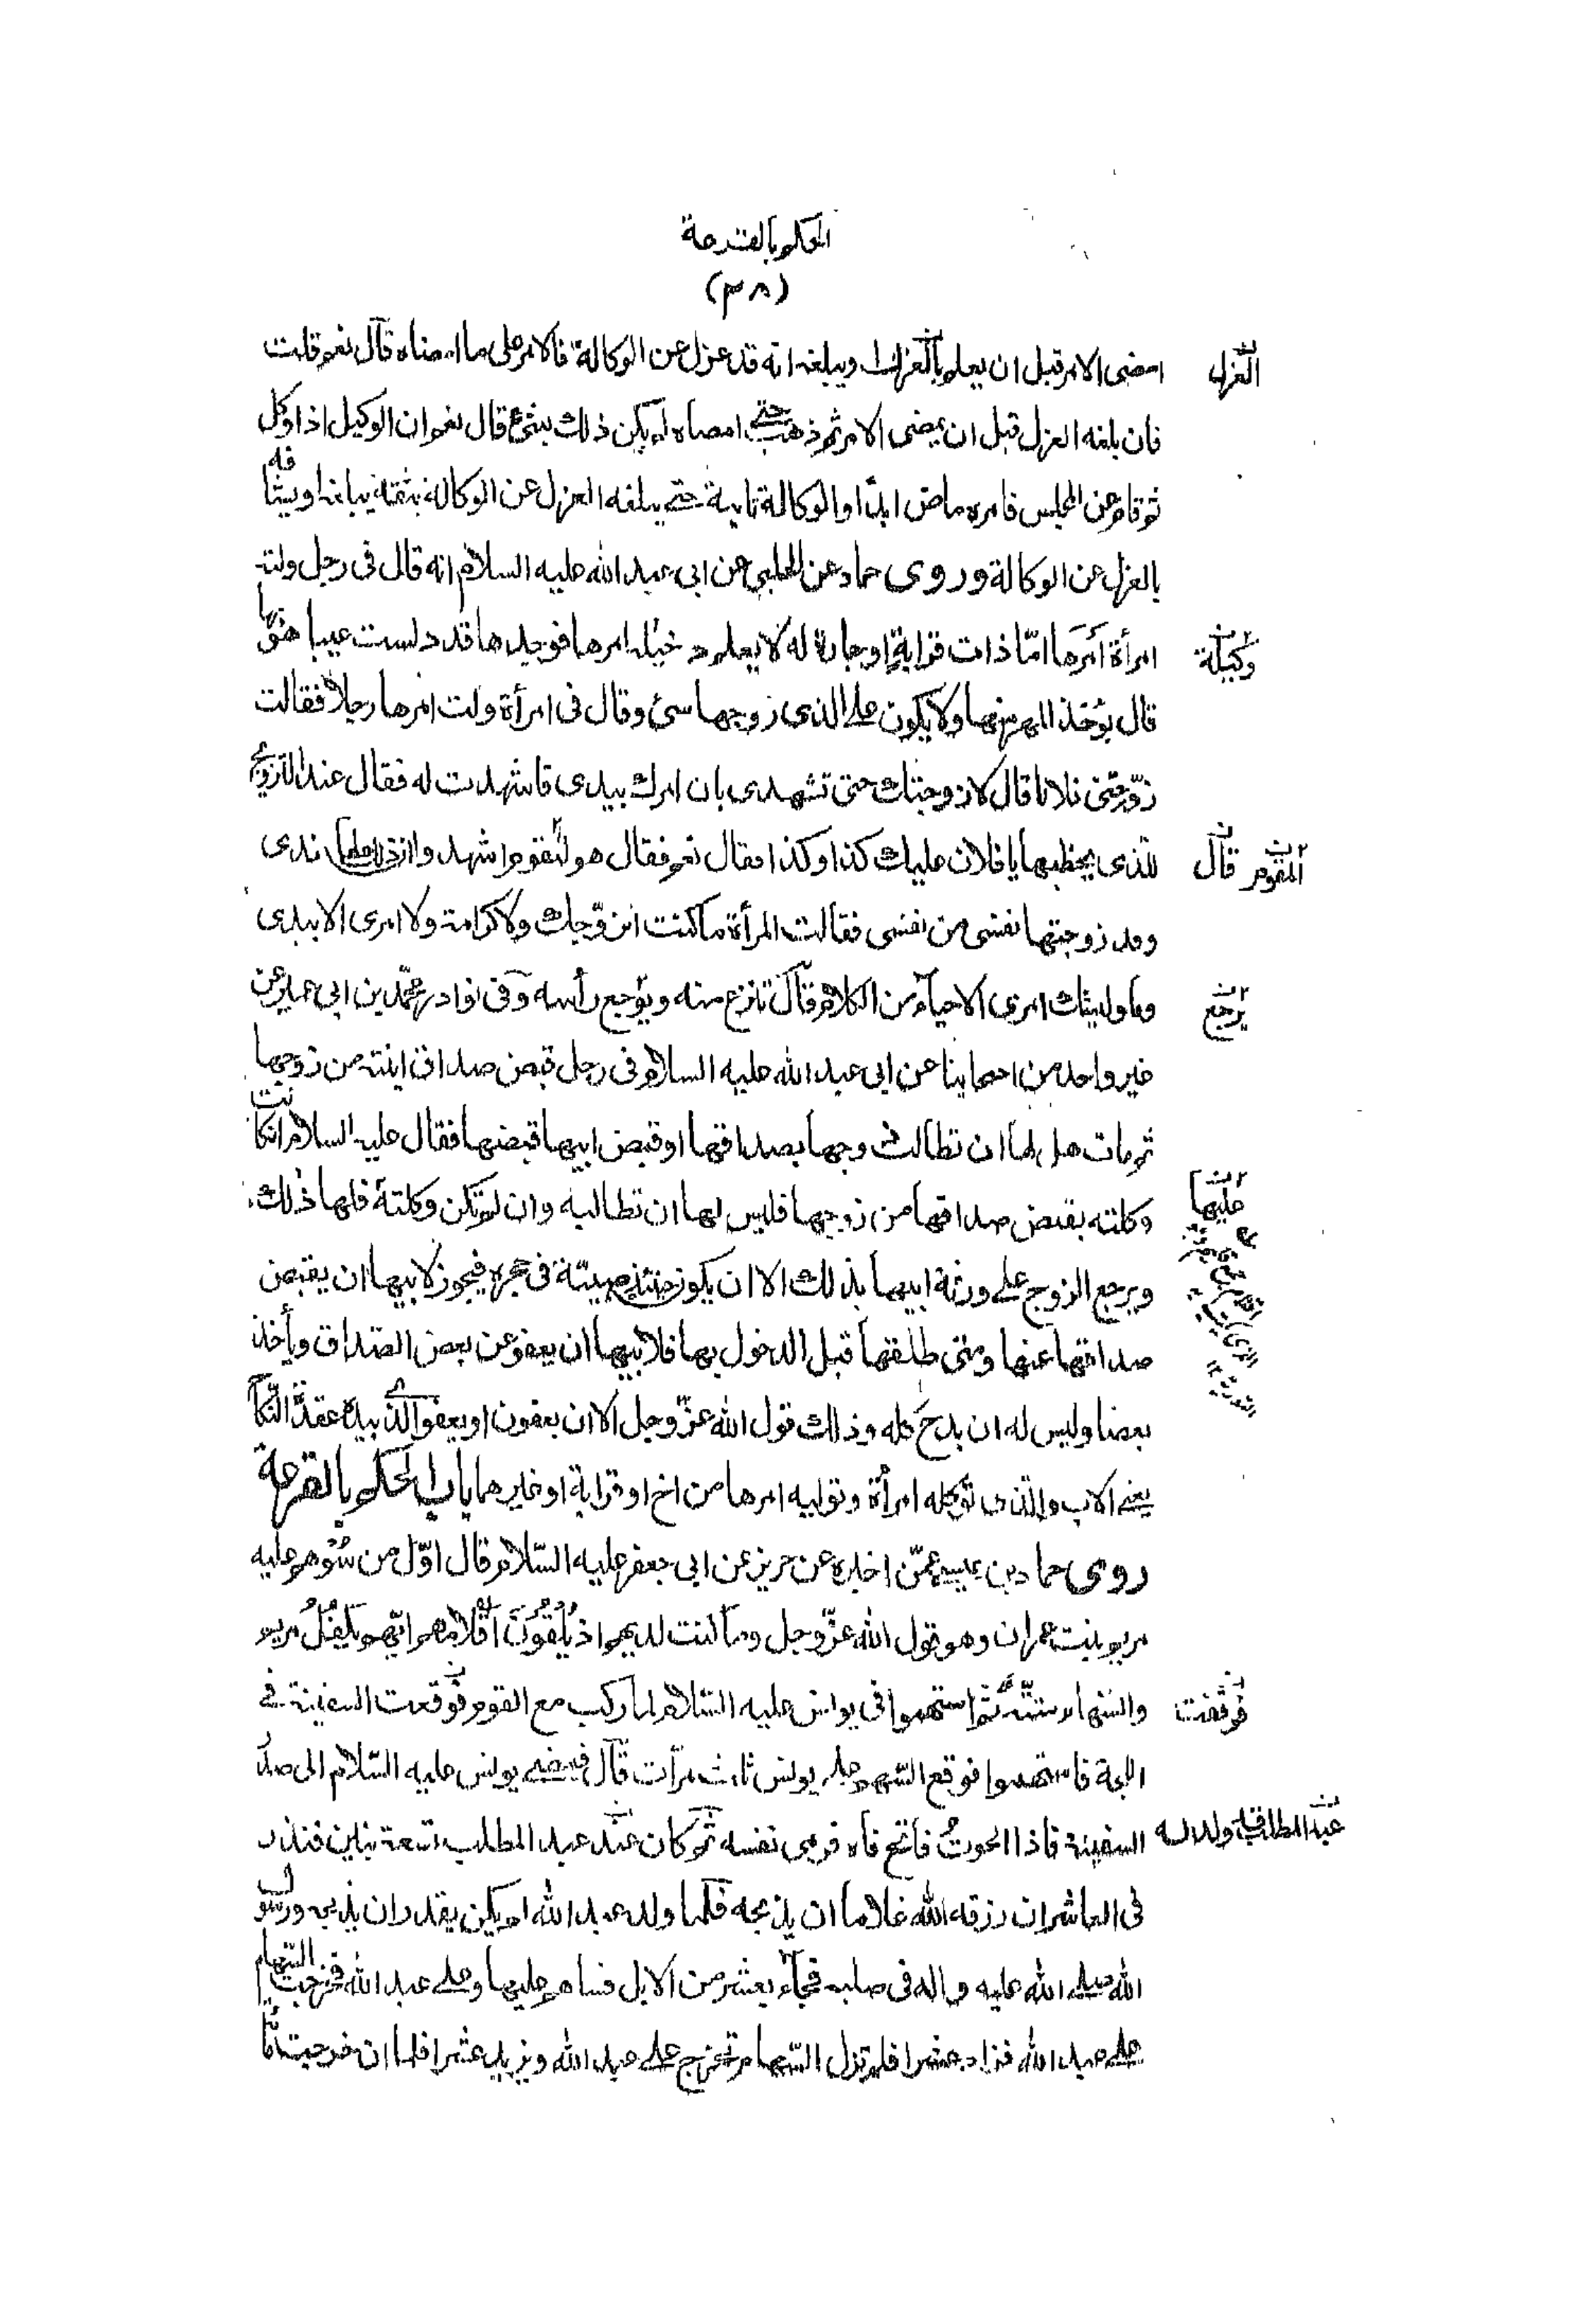 الحكم بالقرعة
(٣٨)
امضى الامر قبل ان يعلم بالعزل او يبلغه انه قد عزل عن الوكالة فالامر على ما امضاه قال نعم قلت
العزل
فان بلغه العزل قبل ان يمضى الامر ثم ذهب حتى امضاه لم يكن ذلك بشئ قال نعم ان الوكيل اذا وكل
ثم قام عن المجلس فامره ماض ابدًا والوكالة ثابتة حتى يبلغه العزل عن الوكالة بثقة يبلغه او يشافه
بالعزل عن الوكالة وروى حماد عن الحلبي عن ابى عبد الله عليه السلام انه قال فى رجل ولته
امرأة اَمرَها امّا ذات قرابةٍ او جارة له لا يعلم دخيلة امرها فوجدها قد دلست عيبا هو بها
وكيلة
قال يؤخذ المهر منها ولا يكون على الذى زوجها شئ وقال فى امرأة ولت امرها رجلا فقالت
زوّجنى فلانا قال لا زوجتك حتى تشهدى بان امرك بيدى فاشهدت له فقال عند التزويج
للذى يخطبها يا فلان عليك كذا وكذا فقال نعم فقال هو للقوم اشهدوا ان ذلك لها عندى
قال
القوم
وقد زوجتها نفسى من نفسى فقالت المرأة ما كنت اتزوّجك ولا كرامة ولا امرى الا بيدى
وما وليتك امرى الا حياءً من الكلام قال تنزع منه ويوجع رأسه وفى نوادر محمّد بن ابى عمير عن
يرجع
غير واحد من اصحابنا عن ابى عبد الله عليه السلام فى رجل قبض صداق ابنته من زوجها
ثم مات هل لها ان تطالب زوجها بصداقها او قبض ابيها قبضها فقال عليه السلام ان كانت
وكلته بقبض صداقها من زوجها فليس لها ان تطالبه وان لم تكن وكلته فلها ذلك
عليها
ويرجع الزوج على ورثة ابيها بذلك الا ان يكون حينئذ صبيّة فى حجره فيجوز لابيها ان يقبض
صداقها عنها ومتى طلّقها قبل الدخول بها فلابيها ان يعفو عن بعض الصداق ويأخذ
بعضا وليس له ان يدع كله وذلك قول الله عزّ وجل الا ان يعفون او يعفو الذى بيده عقدة النكاح
يعنى الاب والذى توكله امرأة وتوليه امرها من اخ او قرابة او غيرهما باب الحكم بالقرعة
روى حماد بن عيسى عمّن اخبره عن حريز عن ابى جعفر عليه السّلام قال اوّل من سُوهم عليه
مريم بنت عمران وهو قول الله عزّ وجل وما كنت لديهم اذ يُلْقُونَ اَقْلامَهم ايّهم يكفُلُ مريم
والسّهام ستّة ثمّ استهموا فى يونس عليه السّلام لما ركب مع القوم فوقعت السفينة فى
فوقفت
اللجة فاستهموا فوقع السّهم على يونس ثلث مرّات قال فمضى يونس عليه السّلام الى صدر
السفينة فاذا الحوتُ فاتح فاه فرمى نفسه ثم كان عند عبد المطلب تسعة بنين فنذر
فى العاشر ان رزقه الله غلاما ان يذبحه فلما ولد عبد الله لم يكن يقدر ان يذبحه ورسول
الله صلى الله عليه واله فى صلبه فجاء بعشر من الابل فساهم عليها وعلى عبد الله فخرجت السّهام
على عبد الله فزاد عشرا فلم تزل السّهام تخرج على عبد الله ويزيد عشرا فلما ان خرجت مأة